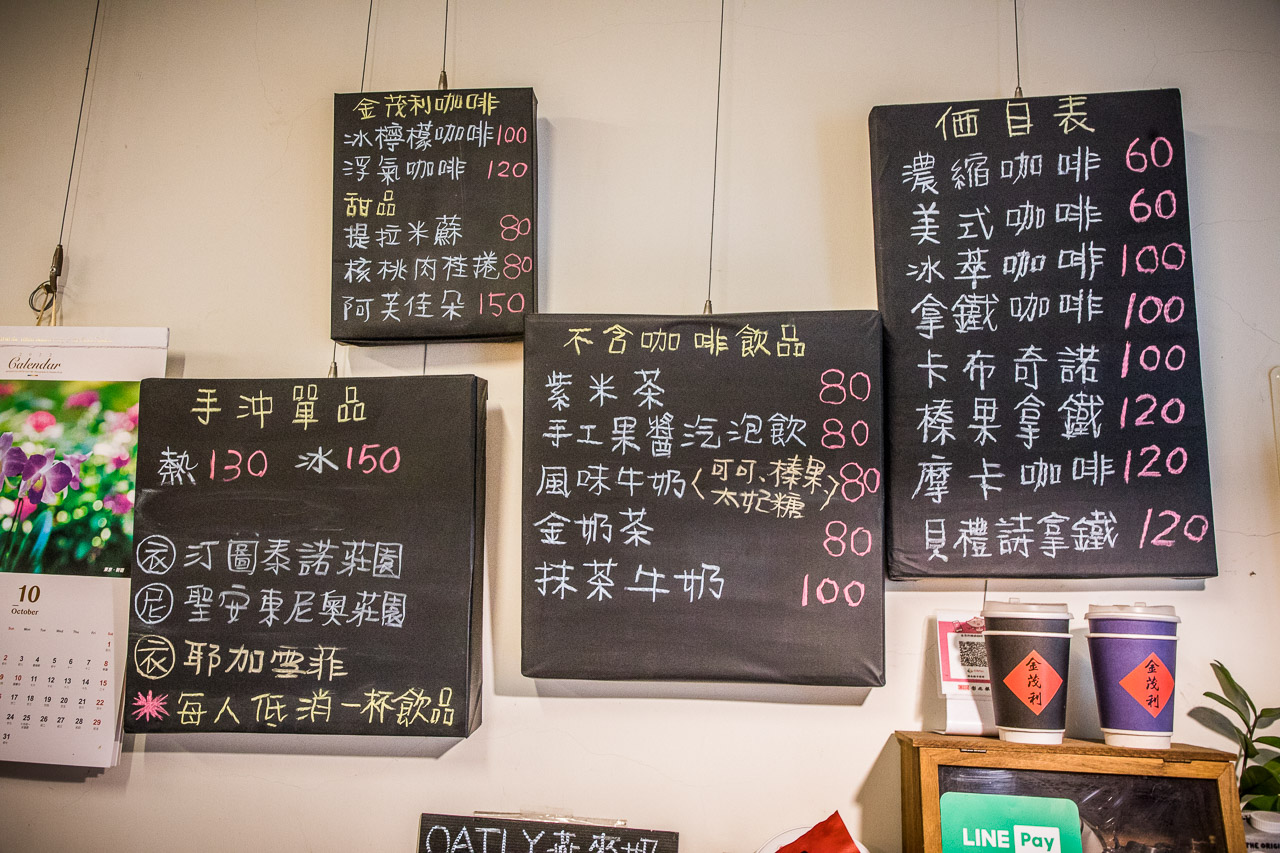 金茂利咖啡
冰檸檬咖啡100
浮氣咖啡 120
甜品
提拉米蘇 80
核桃肉桂捲80
阿芙佳朵 150
価目表
濃縮咖啡 60
美式咖啡 60
冰萃咖啡 100
拿鐵咖啡 100
卡布奇諾 100
榛果拿鐵 120
摩卡咖啡 120
貝禮詩拿鐵 120
不含咖啡飲品
紫米茶 80
手工果醬汽泡飲 80
風味牛奶(可可、榛果 太妃糖) 80
金奶茶 80
抹茶牛奶 100
手沖單品
熱130 冰150
衣 汀圖泰諾莊園
尼 聖安東尼奧莊園
衣 耶加雪菲
每人低消一杯飲品
Calendar
10
October
金茂利
金茂利
LINE Pay
OATLY燕麥奶
THE ORIG